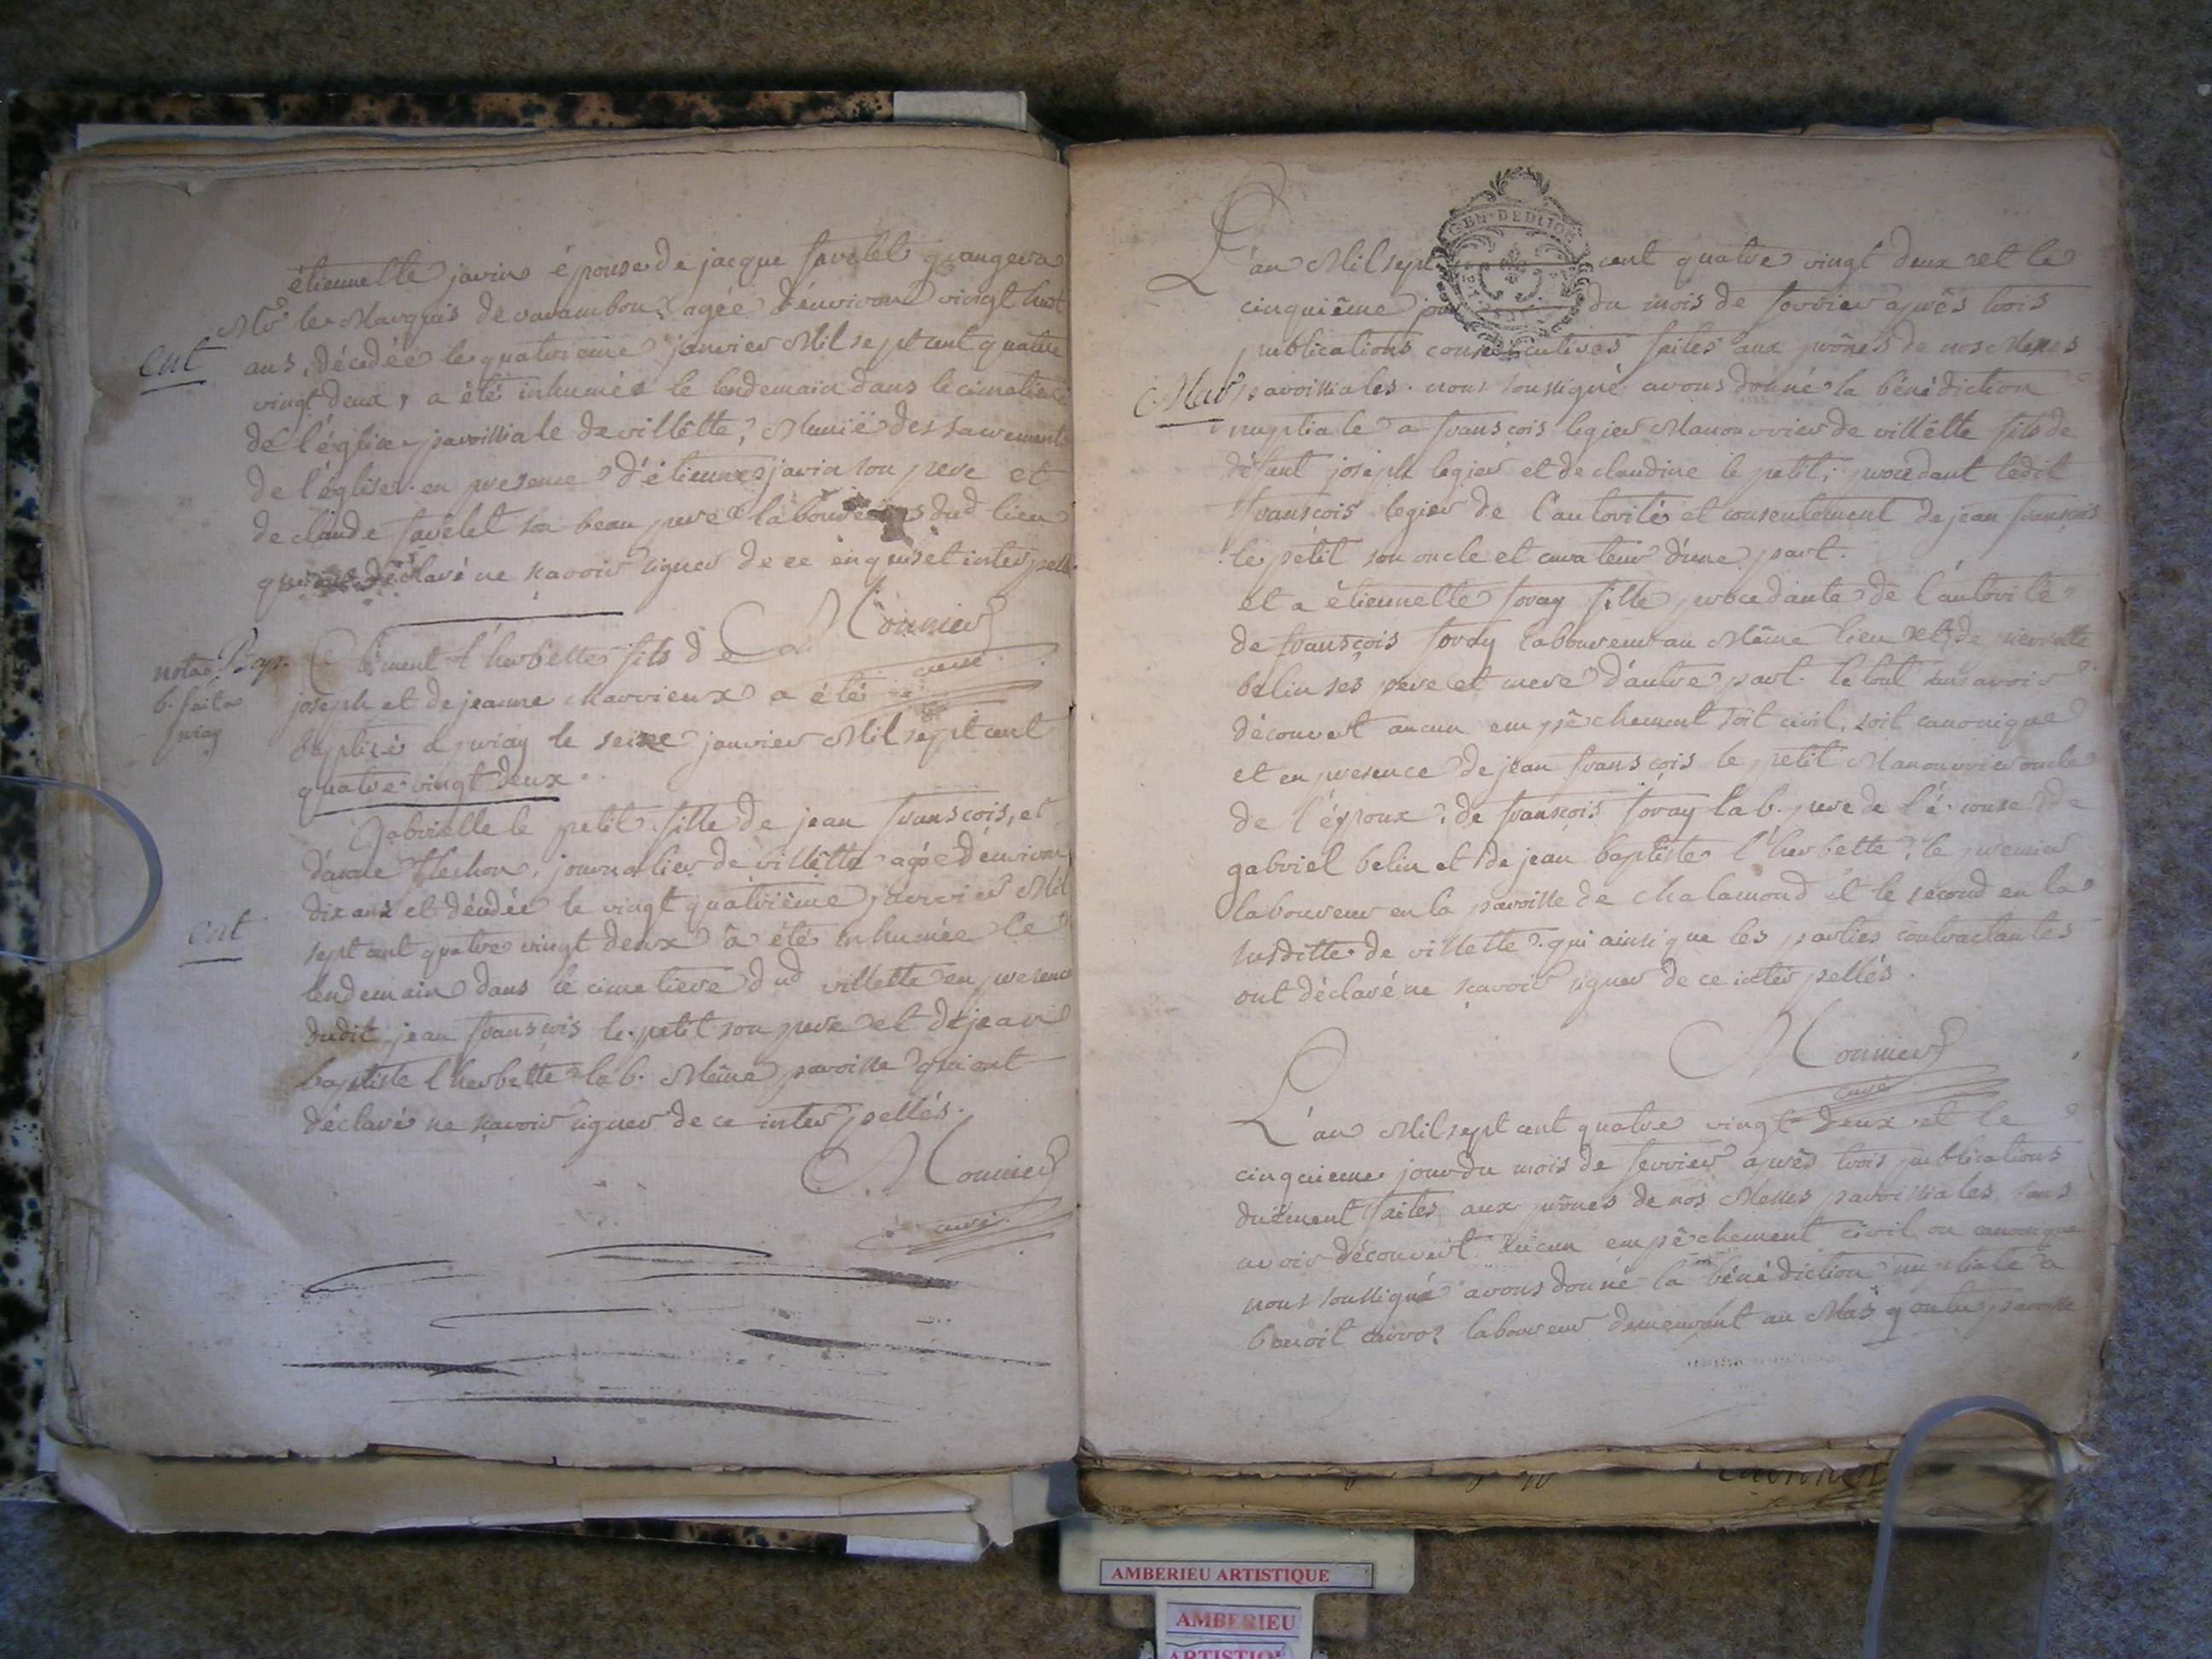 étiennette javin épouse de jacque favelet grangera
Mr le Marquis de varambon, agée d'environ vingt huit
Ent
ans, décédée le quatrieme janvier Mil sept cent quatre
vingt deux, a été inhumée le lendemain dans le cimetiere
de l'église paroissiale de villette, Munie des sacrements
de l'église. en presence d'étienne javin son pere et
de claude favelet son beau pere laboureurs dud lieu
qui ont déclaré ne scavoir signer de ce enquis et interpellé
Monnier
curé
nota Bap.
b. fait a
priay
Clément l'herbette fils de
joseph et de jeanne Marrieux a été
baptisé a priay le seize janvier Mil sept cent
quatre vingt deux
Gabrielle le petit fille de jean franscois, et
d'anne flechon, journalier de villette agée d'environ
dix ans et décédée le vingt quatrième janvier Mil
Ent
sept cent quatre vingt deux a été inhumée le
lendemain dans le cimetiere dud villette en presence
dudit jean franscois le petit son pere et de jean
baptiste l'herbette lab. Même paroisse qui ont
déclaré ne scavoir signer de ce interpellés.
Monnier
curé
GEN. DEDITION
L'an Mil sept cent quatre vingt deux et le
cinquième jour du mois de fevrier après trois
publications consécutives faites aux prônes de nos Messes
Mar
paroissiales. nous soussigné avons donné la bénédiction
nuptiale a franscois legier Manouvrier de villette fils de
défunt joseph legier et de claudine le petit; procedant ledit
franscois legier de l'autorité et consentement de jean franscois
le petit son oncle et curateur d'une part.
et a étiennette foray fille procedante de l'autorité
de franscois foray laboureur au Même lieu et de
belin ses pere et mere d'autre part. le tout sans avoir
découvert aucun empêchement soit civil, soit canonique
et en presence de jean franscois le petit Manouvrier oncle
de l'époux, de franscois foray lab. pere de l'épouse de
gabriel belin et de jean baptiste l'herbette, le premier
laboureur en la paroisse de chalamond et le second en la
susditte de villette. qui ainsi que les parties contractantes
ont déclaré ne scavoir signer de ce interpellés.
Monnier
curé
L'an Mil sept cent quatre vingt deux et le
cinquieme jour du mois de fevrier après trois publications
duëment faites aux prônes de nos Messes paroissiales sans
avoir découvert aucun empêchement civil ou canonique
nous soussigné avons donné la bénédiction nuptiale a
benoit laboureur demeurant au Mas paroisse
AMBERIEU ARTISTIQUE
AMBERIEU
ARTISTIQUE